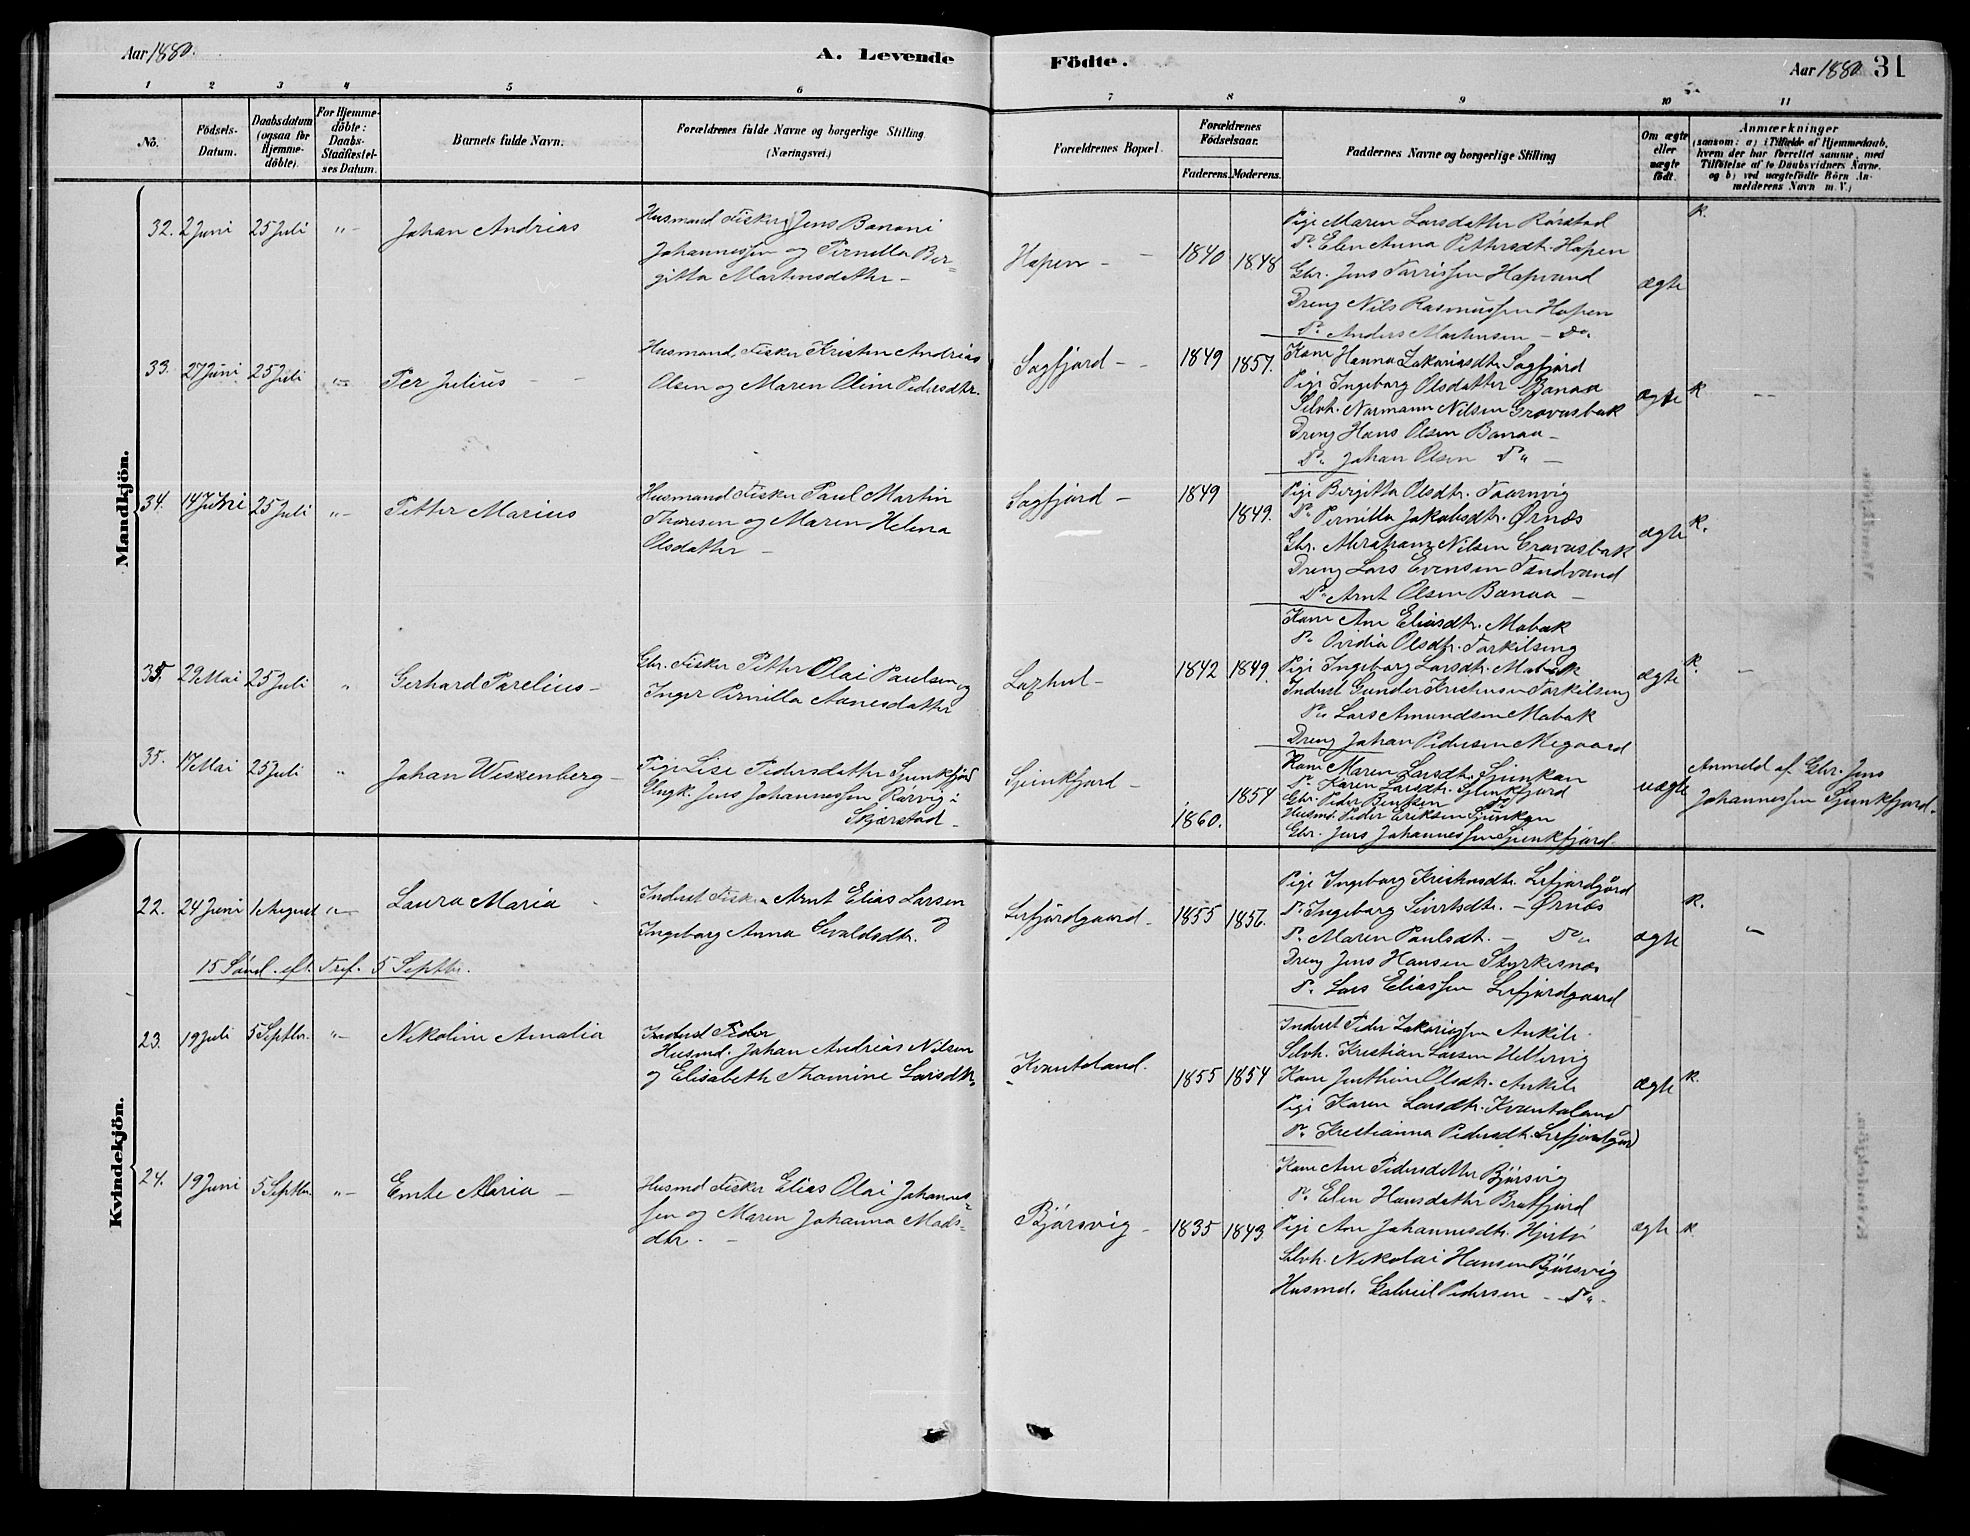 Aar 1880.
A. Levende Födte.
Aar 1880. 31
1 2 3 4 5 6 7 8 9 10 11
No.
Födsels-
Datum.
Daabsdatum
(ogsaa for
Hjemme-
döbte).
For Hjemme-
döbte:
Daabs-
Stadfæstel-
ses Datum.
Barnets fulde Navn.
Forældrenes fulde Navne og borgerlige Stilling
(Næringsvei.)
Forældrenes Bopæl.
Forældrenes
Födselsaar.
Faderens. Moderens.
Faddernes Navne og borgerlige Stilling
Om ægte
eller
uægte
födt.
Anmærkninger
(saasom: a) i Tilfælde af Hjemmedaab,
hvem der har forrettet samme, med
Tilföielse af to Daabsvidners Navne.
og b) ved uægtefödte Börn An-
melderens Navn m. V.)
Mandkjön.
32. 2 Juni 25 Juli "- Johan Andrias
Husmand Fisker Jens Banoni
Johannessen og Pernilla Ber=
gitta Martinsdatter -
Hopen - -
1840 1848
Pige Maren Larsdatter Rörstad
Do. Elen Anna Pettersdt. Hopen
Gbr. Jens Torrissen Hopvand
Dreng Nils Rasmussen Hopen
Do. Anders Martinsen - Do.
ægte
k.
33. 27 Juni 25 Juli "- Per Julius - -
Husmand, Fisker Kristen Andrias
Olsen og Maren Oline Pedersdtr.
Sagfjord -
1849 1857.
Kone Hanna Zakariasdtr. Sagfjord
Pige Ingeborg Olsdatter Bonaa
Selvh. Normann Nilsen Gravasbak
Dreng Hans Olsen Bonaa -
Do. Johan Olsen Do. -
ægte
k
34. 14 Juni 25 Juli "- Petter Marius
Husmand Fisker Paul Martin
Thoresen og Maren Helena
Olsdatter -
Sagfjord -
1849 1849.
Pige Birgitta Olsdtr. Taarnvig
Do. Pernilla Jakobsdtr. Ørnæs
Gbr. Abraham Nilsen Gravasbak
Dreng Lars Evensen Tendvand
Do. Arnt Olsen Bonaa -
ægte
k.
35. 29 Mai 25 Juli " Gerhard Parelius -
Gbr. Fisker Petter Olai Paulsen og
Inger Pernilla Aanesdatter
1842 1849.
Kone Ane Eliasdtr. Mobak
Do. Ovidia Olsdtr. Torkilseng
Pige Ingeborg Larsdtr. Mobak
Inderst Gunder Kristensen Torkilseng
Do. Lars Amundsen Mobak
Dreng Johan Pedersen Megaard
ægte
k.
35. 17 Mai 25 Juli " Johan Weszenberg -
Pige Lise Pedersdatter Sjunkfjord
Ungk. Jens Johannessen Rörvig i
Skjærstad -
Sjunkfjord -
1860. 1854
Kone Maren Larsdtr. Sjunkan
Do. Karen Larsdtr. Sjunkfjord
Gbr. Peder Bentsen Do.
Husmd. Peder Eriksen Sjunkan
Gbr. Jens Johannessen Sjunkfjord.
uægte
Anmeld. af Gbr. Jens
Johannessen Sjunkfjord.
Kvindekjön.
22. 24 Juni 1 August "- Laura Maria
Inderst Fisker Arnt Elias Larsen
og
Ingeborg Anna Sivaldsdtr.
Lerfjordgaard -
1855 1856.
Pige Ingeborg Kristensdtr. Lerfjordgård
Do. Ingeborg Sivertsdtr. - Ørnæs
Do. Maren Paulsdt. - Do.
Dreng Jens Hansen Styrkesnæs
Do. Lars Eliassen Lerfjordgaard
ægte
k.
15 Sönd. eft. Tref. 5 Septbr.
23. 19 Juli 5 Septbr. "- Nikoline Amalia
Inderst Fisker
Husmd. Johan Andrias Nilsen
og Elisabeth Thomine Larsdtr.
Kvantoland.
1855 1854
Inderst Peder Zakariassen Aukile
Selvh. Kristian Larsen Hellervig
Kone Jenthine Olsdtr. Aukile
Pige Karen Larsdtr. Kvantoland
Do. Kristianna Pedersdt. Lerfjordgård
ægte
k.
24. 19 Juni 5 Septbr. "- Emte Maria -
Husmd Fisker Elias Olai Johannes=
sen og Maren Johanna Mads=
dtr. -
Bjørsvig -
1835 1843
Kone Ane Pedersdatter Bjørsvig
Do. Elen Hansdatter Bratfjord
Pige Ane Johannesdtr. Hjertö
Selvh. Nikolai Hansen Bjørsvig
Husmd. Gabriel Pedersen - Do. -
ægte
k.